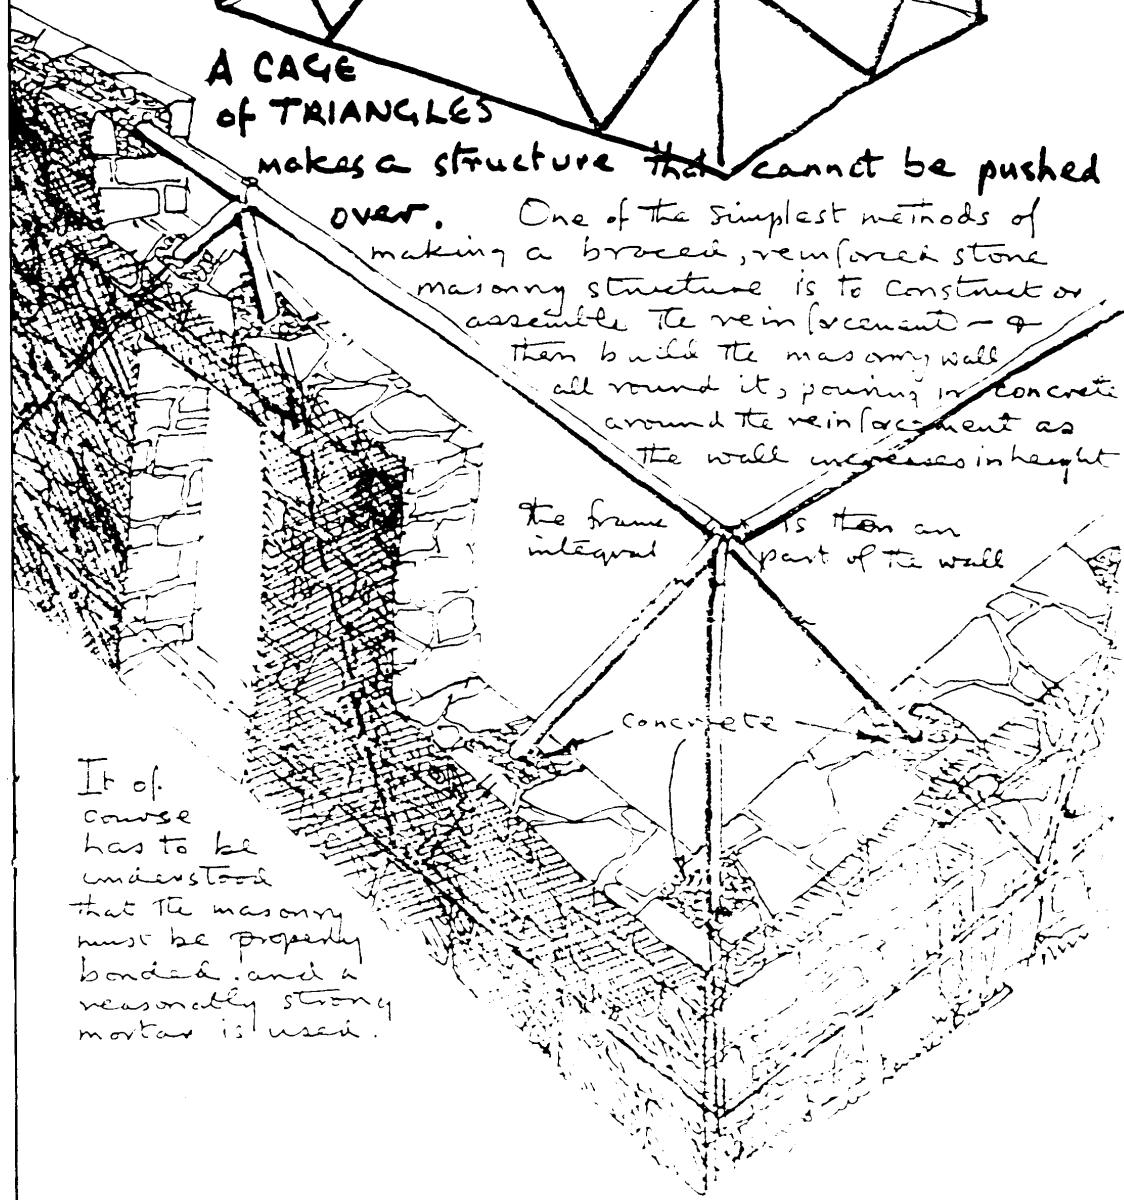 A CAGE
of TRIANGLES
makes a structure that cannot be pushed
over.
One of the simplest methods of
making a braced, reinforced stone
masonry structure is to construct or
assemble the reinforcement — &
then build the masonry wall
all round it, pouring in concrete
around the reinforcement as
the wall increases in height
the frame is then an
integral part of the wall
concrete
It of
course
has to be
understood
that the masonry
must be properly
bonded. and a
reasonably strong
mortar is used.